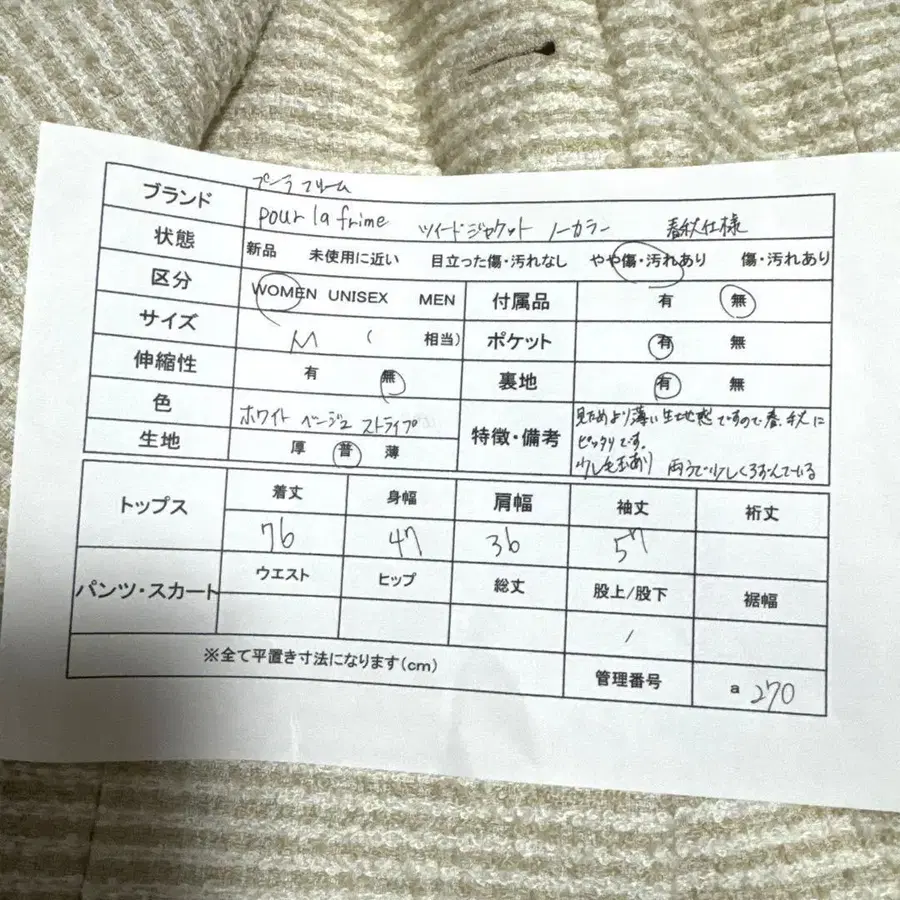 プーラフリーム
ブランド pour la frime ツイードジャケット ノーカラー 春秋仕様
状態 新品 未使用に近い 目立った傷・汚れなし やや傷・汚れあり 傷・汚れあり
区分 WOMEN UNISEX MEN 付属品 有 無
サイズ M ( 相当) ポケット 有 無
伸縮性 有 無 裏地 有 無
色 ホワイト ベージュ ストライプ
生地 厚 普 薄
特徴・備考 見ためより薄い生地感ですので春、秋に
ピッタリです。
少し毛玉あり 両うで少しくろずんでいる
トップス 着丈 身幅 肩幅 袖丈 裄丈
76 47 36 57
パンツ・スカート ウエスト ヒップ 総丈 股上/股下 裾幅
/
※全て平置き寸法になります(cm) 管理番号 a 270